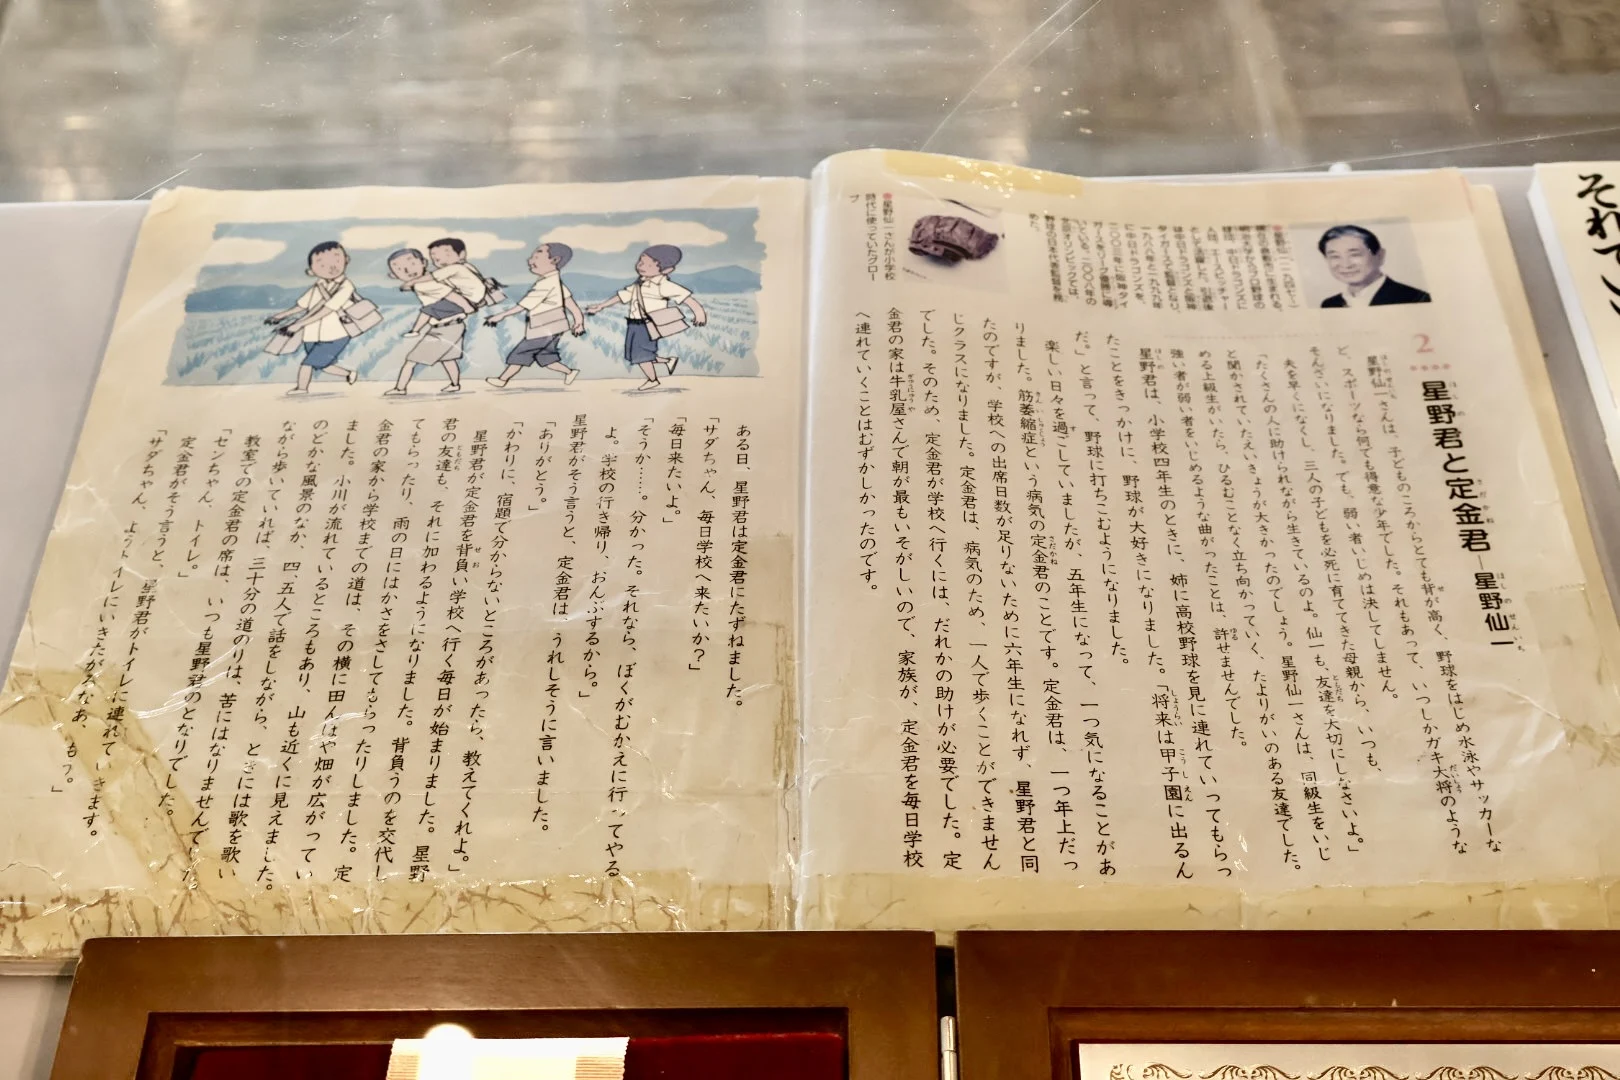 2
星野君と定金君―星野仙一
星野仙一さんは、子どものころからとても背が高く、野球をはじめ水泳やサッカーな
ど、スポーツなら何でも得意な少年でした。それもあって、いつしかガキ大将のような
そんざいになりました。でも、弱い者いじめは決してしません。
夫を早くになくし、三人の子どもを必死に育ててきた母親から、いつも、
「たくさんの人に助けられながら生きているのよ。仙一も、友達を大切にしなさいよ。」
と聞かされていたえいきょうが大きかったのでしょう。星野仙一さんは、同級生をいじ
める上級生がいたら、ひるむことなく立ち向かっていく、たよりがいのある友達でした。
強い者が弱い者をいじめるような曲がったことは、許せませんでした。
星野君は、小学校四年生のときに、姉に高校野球を見に連れていってもらっ
たことをきっかけに、野球が大好きになりました。「将来は甲子園に出るん
だ。」と言って、野球に打ちこむようになりました。
楽しい日々を過ごしていましたが、五年生になって、一つ気になることがあ
りました。筋萎縮症という病気の定金君のことです。定金君は、一つ年上だっ
たのですが、学校への出席日数が足りないために六年生になれず、星野君と同
じクラスになりました。定金君は、病気のため、一人で歩くことができません
でした。そのため、定金君が学校へ行くには、だれかの助けが必要でした。定
金君の家は牛乳屋さんで朝が最もいそがしいので、家族が、定金君を毎日学校
へ連れていくことはむずかしかったのです。
●星野仙一さんが小学校
時代に使っていたグロー
ブ
ある日、星野君は定金君にたずねました。
「サダちゃん、毎日学校へ来たいか？」
「毎日来たいよ。」
「そうか……。分かった。それなら、ぼくがむかえに行ってやる
よ。学校の行き帰り、おんぶするから。」
星野君がそう言うと、定金君は、うれしそうに言いました。
「ありがとう。」
「かわりに、宿題で分からないところがあったら、教えてくれよ。」
星野君が定金君を背負い学校へ行く毎日が始まりました。星野
君の友達も、それに加わるようになりました。背負うのを交代し
てもらったり、雨の日にはかさをさしてもらったりしました。定
金君の家から学校までの道は、その横に田んぼや畑が広がってい
ました。小川が流れているところもあり、山も近くに見えました。
のどかな風景のなか、四、五人で話をしながら、ときには歌を歌い
ながら歩いていれば、三十分の道のりは、苦にはなりませんでした。
教室での定金君の席は、いつも星野君のとなりでした。
「センちゃん、トイレ。」
定金君がそう言うと、星野君がトイレに連れていきます。
「サダちゃん、ようトイレにいきたがるなあ、もう。」
それでい